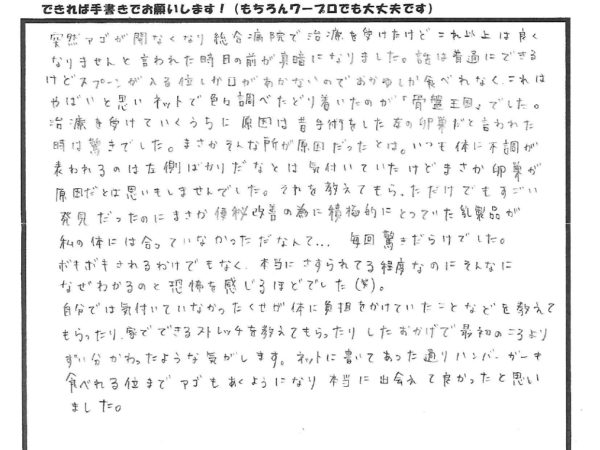 できれば手書きでお願いします！（もちろんワープロでも大丈夫です）
突然アゴが開なくなり総合病院で治療を受けたけどこれ以上は良く
なりませんと言われた時目の前が真暗になりました。話は普通にできる
けどスプーンが入る位しか口があかないのでおかゆしか食べれなく、これは
やばいと思いネットで色々調べたどり着いたのが「骨盤王国」でした。
治療を受けていくうちに原因は昔手術をした左の卵巣だと言われた
時は驚きでした。まさかそんな所が原因だったとは。いつも体に不調が
表われるのは左側ばかりだなとは気付いていたけどまさか卵巣が
原因だとは思いもしませんでした。それを教えてもらっただけでもすごい
発見だったのにまさか便秘改善の為に積極的にとっていた乳製品が
私の体には合っていなかっただなんて... 毎回驚きだらけでした。
ボキボキされるわけでもなく、本当にさすられてる程度なのにそんなに
なぜわかるのと恐怖を感じるほどでした(笑)。
自分では気付いていなかったくせが体に負担をかけていたことなどを教えて
もらったり、家でできるストレッチを教えてもらったりしたおかげで最初のころより
ずい分かわったような気がします。ネットに書いてあった通りハンバーガーも
食べれる位までアゴもあくようになり本当に出会えて良かったと思い
ました。